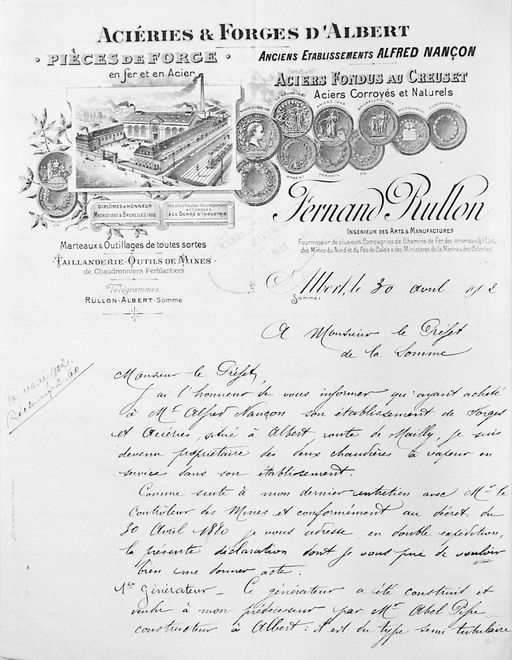 ACIÉRIES & FORGES D'ALBERT
PIÈCES DE FORGE
en fer et en Acier
ANCIENS ETABLISSEMENTS ALFRED NANÇON
ACIERS FONDUS AU CREUSET
Aciers Corroyés et Naturels
DIPLÔMES D'HONNEUR
MADRID 1880 & BRUXELLES 1888
les plus hautes récompenses
ACCORDÉES
A CE GENRE D'INDUSTRIE
Fernand Rullon
INGÉNIEUR DES ARTS & MANUFACTURES
Fournisseur de plusieurs Compagnies de Chemins de Fer des Arsenaux de l'Etat,
des Mines du Nord et du Pas de Calais & des Ministères de la Marine & des Colonies
Marteaux & Outillages de toutes sortes
TAILLANDERIE - OUTILS DE MINES
de Chaudronniers-Ferblantiers
Télégrammes:
RULLON-ALBERT-Somme
Albert, le 30 avril 1902
(Somme)
A Monsieur le Préfet
de la Somme
Monsieur le Préfet,
J'ai l'honneur de vous informer qu'ayant acheté
à Mr Alfred Nançon son établissement de Forges
et Aciéries, situé à Albert, route de Mailly, je suis
devenu propriétaire des deux chaudières à vapeur en
service dans son établissement.
Comme suite à mon dernier entretien avec Mr le
Contrôleur des Mines et conformément au décret du
30 Avril 1880 je vous adresse, en double expédition,
la présente déclaration dont je vous prie de vouloir
bien me donner acte.
1er Générateur - Ce générateur a été construit et
vendu à mon prédécesseur par Mr Abel Pifre
constructeur à Albert : il est du type semi tubulaire